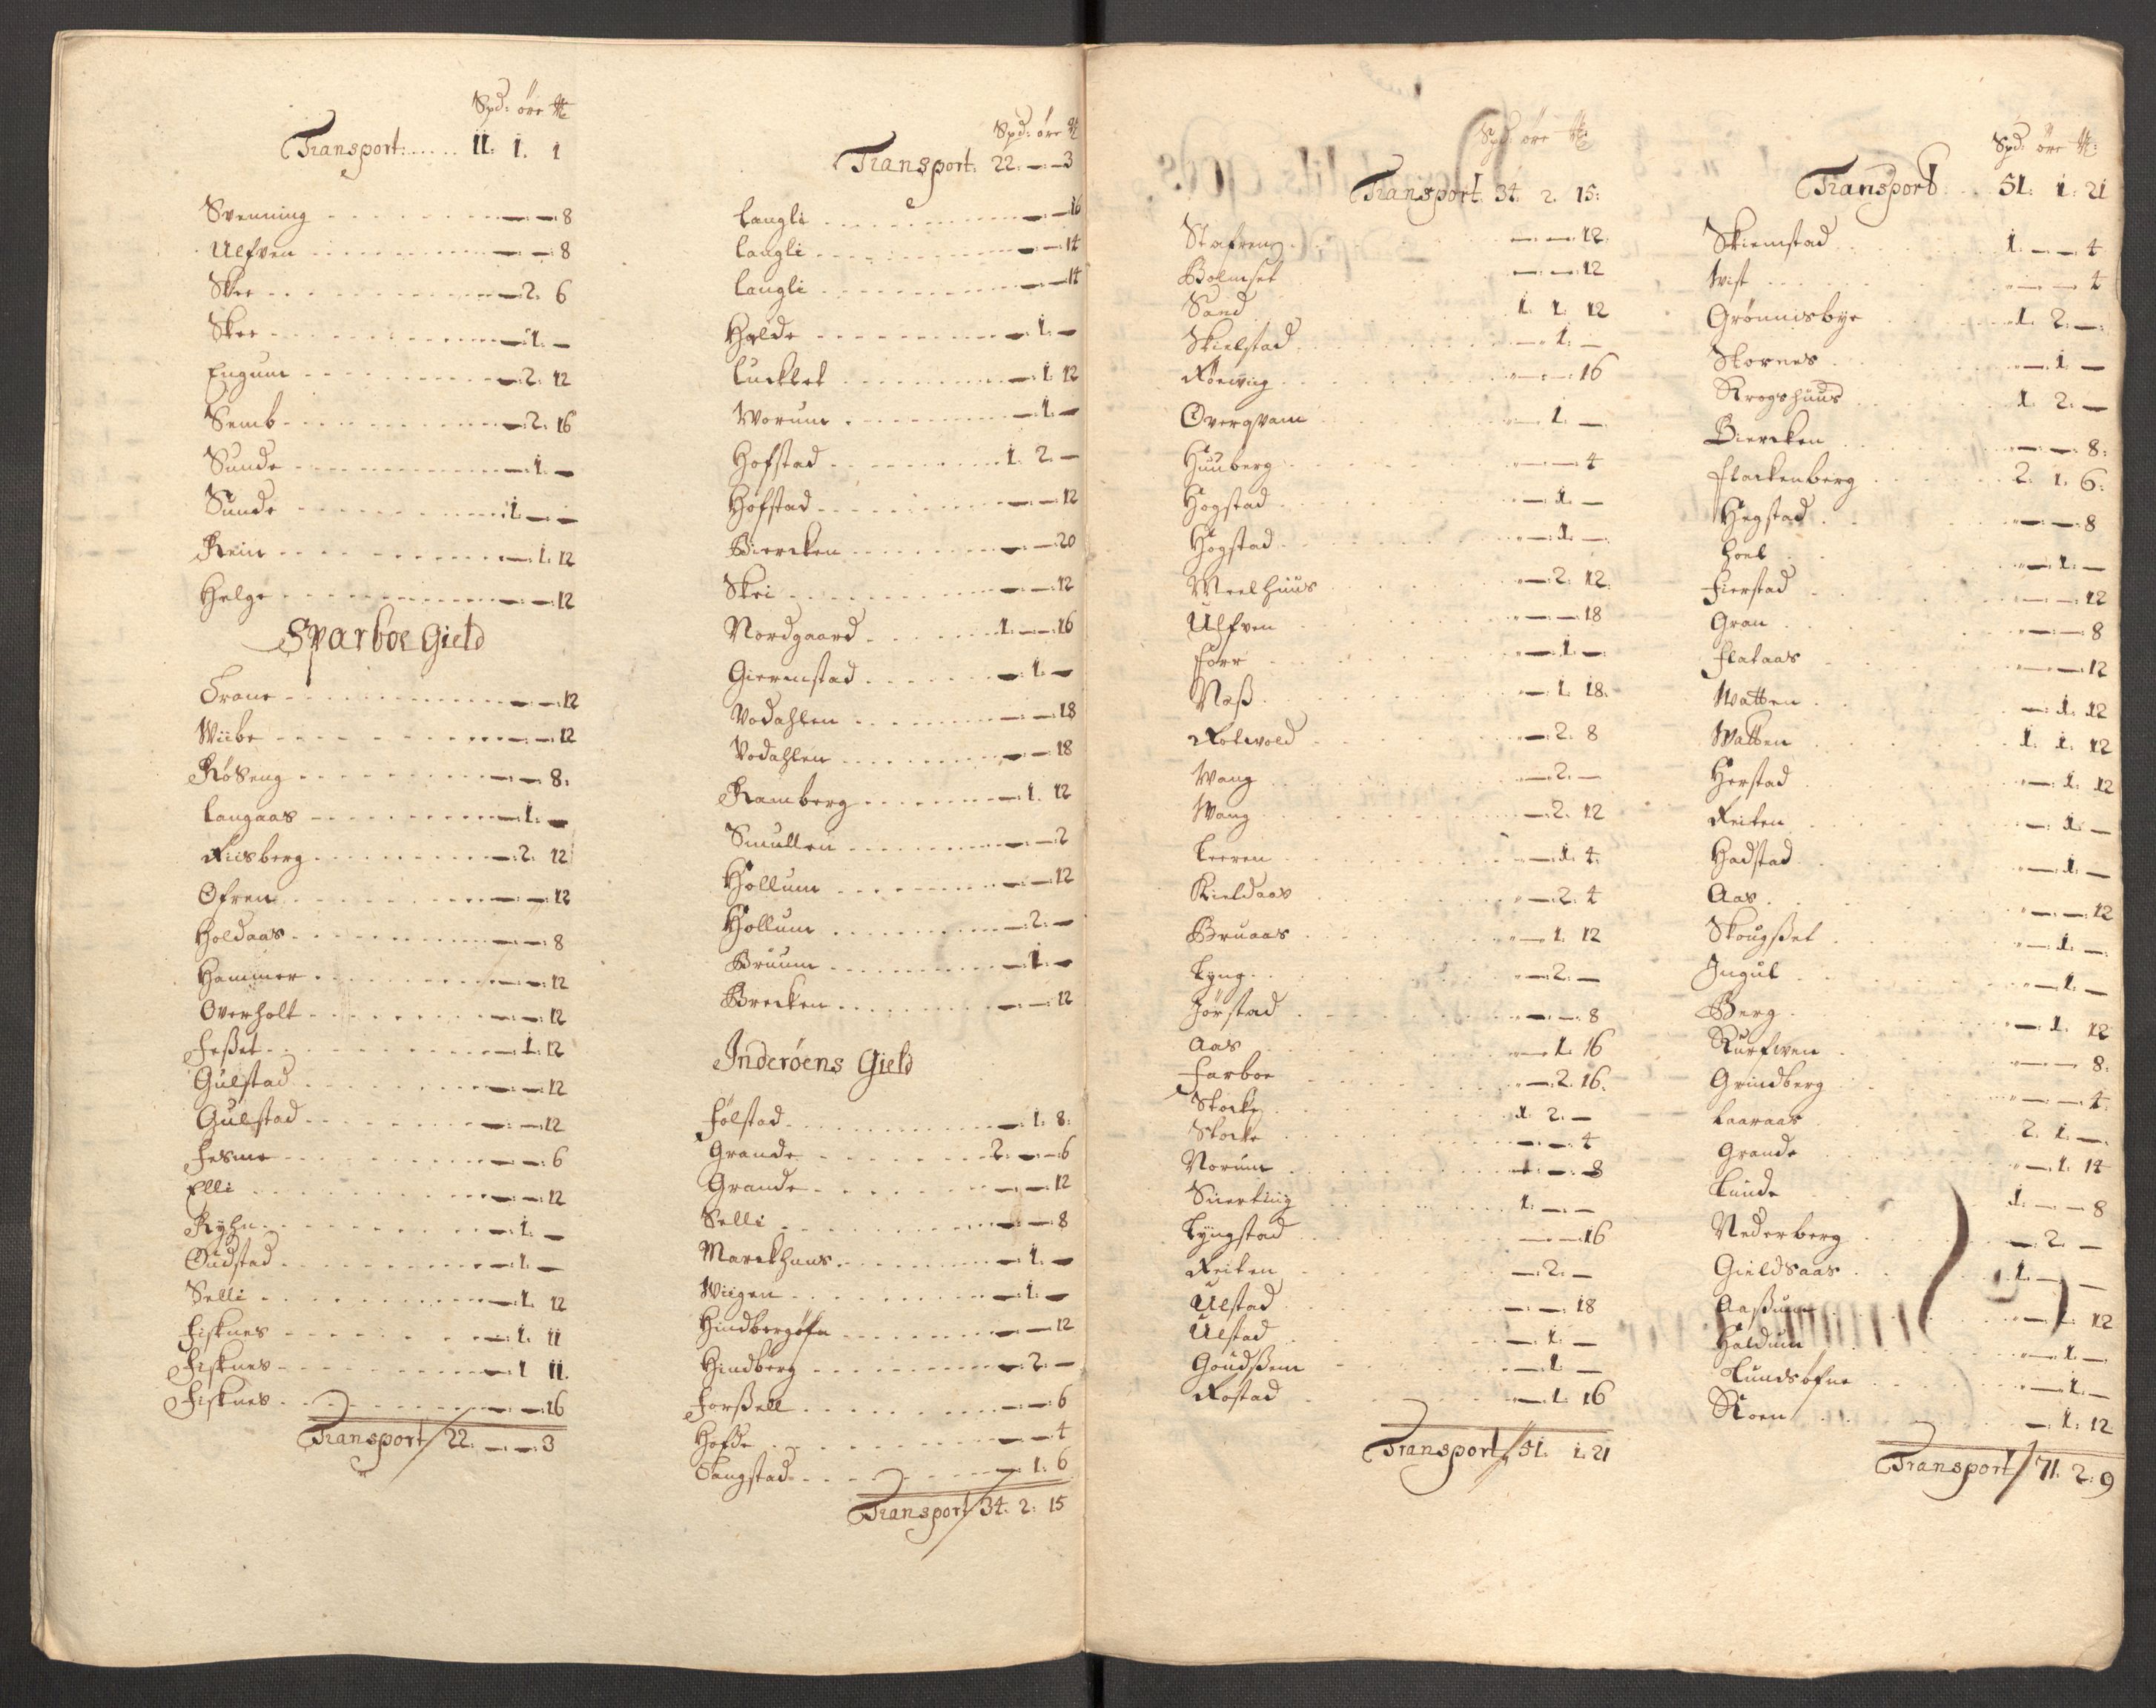 Spd: öre
Transport: 11: 1. 1
Svenning — — 8
Ulfven — — 8
Skee — 2. 6
Skee — 1. —
Engum — 2. 12
Semb — 2. 16
Sunde — 1. —
Sunde 1. — —
Rein — 1. 12
Helge — — 12
Sparboe Gield
Trane — — 12
Wiibe — — 12
Røseng — — 8.
Langaas — 1. —
Riisberg — 2. 12
Ofren — — 12
Holdaas — — 8
Hammer — — 12
Overholt — — 12
Feßet — 1. 12
Gulstad — — 12
Gulstad — — 12
Fesme — — 6
Elli — — 12
Ryhn — 1. —
Oudstad — 1. —
Selli — 1. 12
Fisknes — 1. 11
Fisknes — 1 11.
Fisknes — — 16
Transport 22. — — 3
Spd: öre
Transport: 22. — — 3
Langli — — 16
Langli — — 14
Langli — — 14
Halde — 1. —
Lucktet — 1. 12
Worum — 1. —
Hofstad 1. 2. —
Hofstad — — 12
Biercken — — 20
Skei — — 12
Nordgaard 1. — 16
Giermstad — 1. —
Vodahlen — — 18
Vodahlen — — 18
Ramberg — 1. 12
Smullen — — 2
Hollum — — 12
Hollum — 2. —
Bruum — 1. —
Brecken — — 12
Inderöens Gield
Folstad — 1. 8:
Grande 2. — 6
Grande — — 12
Selli — — 8
Marckhuus — 1. —
Wiigen — 1. —
Hindbergøfn — — 12
Hindberg — 2. —
Forßell — — 6
Hofde — — 4
Tangstad — 1. 6
Transport 34. 2: 15
Spd öre
Transport 34. 2. 15:
Stafren — — 12.
Bolmset — — 12
Sand 1. 1. 12
Skielstad — 1. —
Röewiig — — 16
Overqvam — 1. —
Huuberg — — 4
Hogstad — 1. —
Hogstad — 1. —
Meelhuus — 2. 12.
Ulfven — — 18
Forr — 1. —
Næß — 1. 18.
Rotwold — 2. 8
Wang — 2. —
Wang — 2. 12
Leeren — 1. 4.
Kieldaas — 2. 4
Bruaas — 1. 12
Lyng — 2. —
Jörstad — — 8
Aas — 1. 16
Farboe — 2. 16.
Stocke 1. 2. —
Stocke — — 4
Norum 1. — 8
Snerting 1. — —
Lyngstad — — 16
Reiten — 2. —
Ulstad — — 18
Ulstad — 1. —
Goudßem — 1. —
Rostad — 1. 16
Transport 51. 1. 21
Spd: öre
Transport 51: 1: 21
Skiemstad 1. — 4
Wist — — 4
Grönnisbye 1. 2. —
Stornes — 1. —
Krogshuus 1. 2. —
Biercken — — 8:
Flackenberg 2. 1. 6:
Hegstad — — 8
Hoel — 1. —
Fierstad — — 12
Gran — — 8
Flataas — — 12
Watten — 1. 12
Watten 1. 1. 12
Herstad — 1. 12
Reiten — 1. —
Hadstad — 1. —
Aas — — 12
Skougßet — 1. —
Ingul — 1. —
Berg — 1. 12
Kurfwen — — 8:
Grindberg — — 4.
Laaraas 2. 1. —
Grande — 1. 14
Lunde 1. — 8
Nederberg — 2. —
Gieldsaas 1. — —
Aaßum — — 12
Haldum — 1. —
Lundsofne — 1. —
Roen — 1. 12
Transport 71. 2: 9